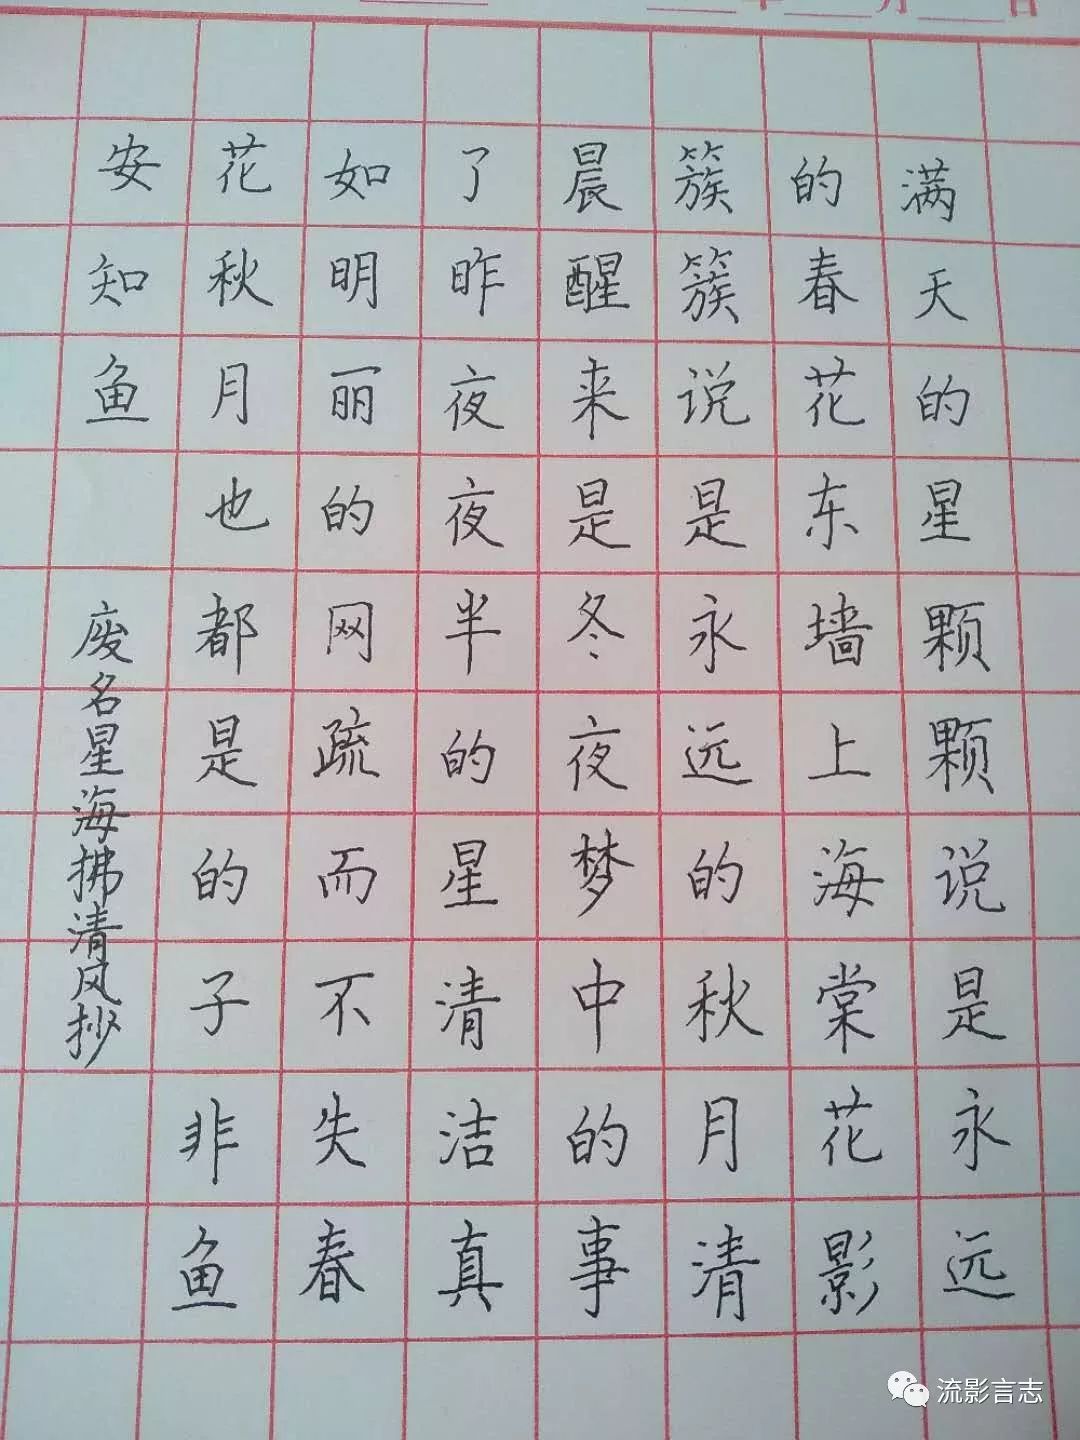 年 月 日
满天的星颗颗说是永远
的春花东墙上海棠花影
簇簇说是永远的秋月清
晨醒来是冬夜梦中的事
了昨夜夜半的星清洁真
如明丽的网疏而不失春
花秋月也都是的子非鱼
安知鱼
废名星海拂清风抄
流影言志